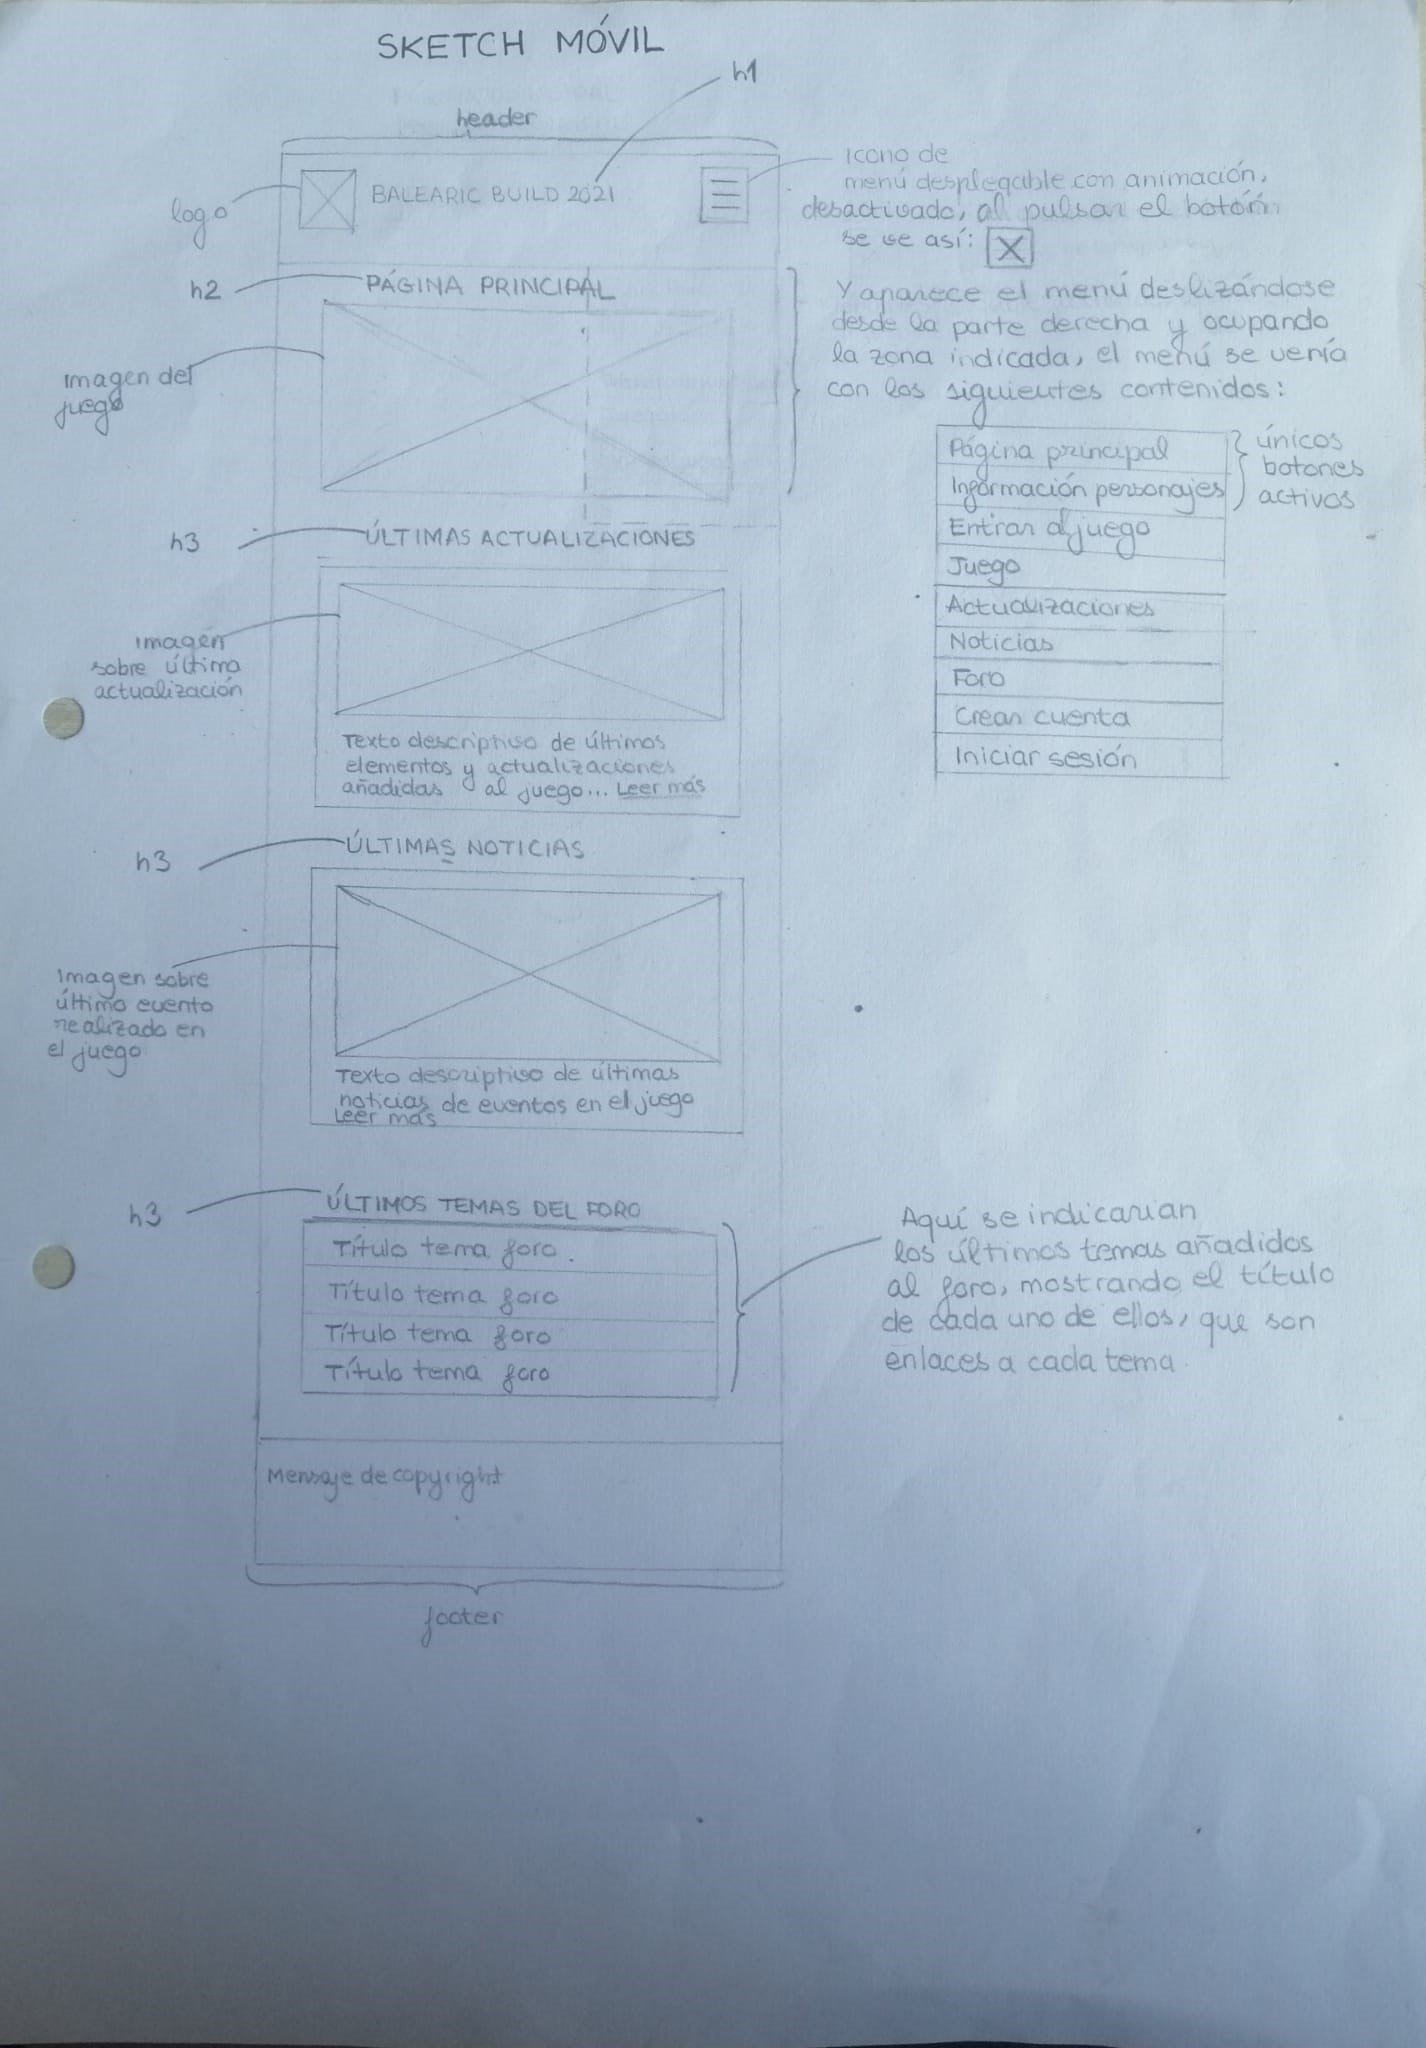 SKETCH MÓVIL
h1
header
logo
BALEARIC BUILD 2021
Icono de
menú desplegable con animación,
desactivado, al pulsar el botón
se ve así: X
h2
PÁGINA PRINCIPAL
Imagen del
juego
Y aparece el menú deslizándose
desde la parte derecha y ocupando
la zona indicada, el menú se vería
con los siguientes contenidos:
Página principal
Información personajes
Entrar al juego
Juego
Actualizaciones
Noticias
Foro
Crear cuenta
Iniciar sesión
únicos
botones
activos
h3
ÚLTIMAS ACTUALIZACIONES
Imagen
sobre última
actualización
Texto descriptivo de últimos
elementos y actualizaciones
añadidas al juego... Leer más
h3
ÚLTIMAS NOTICIAS
Imagen sobre
último evento
realizado en
el juego
Texto descriptivo de últimas
noticias de eventos en el juego
Leer más
h3
ÚLTIMOS TEMAS DEL FORO
Título tema foro.
Título tema foro
Título tema foro
Título tema foro
Aquí se indicarian
los últimos temas añadidos
al foro, mostrando el título
de cada uno de ellos, que son
enlaces a cada tema.
Mensaje de copyright
footer